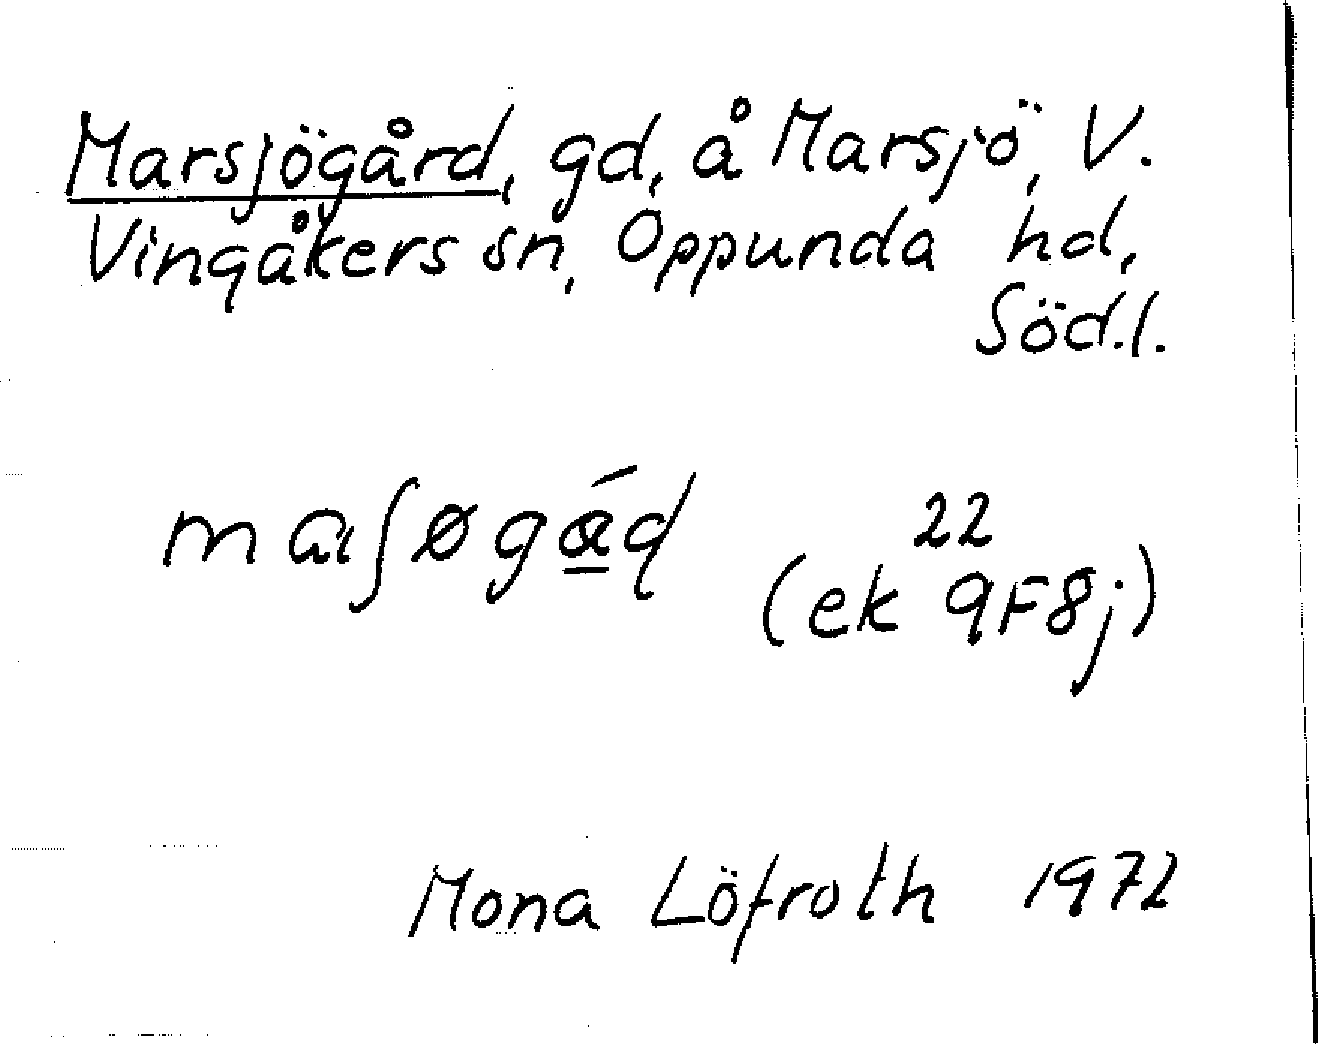 Marsjögård, gd, å Marsjö, V.
Vingåkers sn, Oppunda hd,
Söd.l.
22
(ek 9F8j)
Mona Löfroth 1972